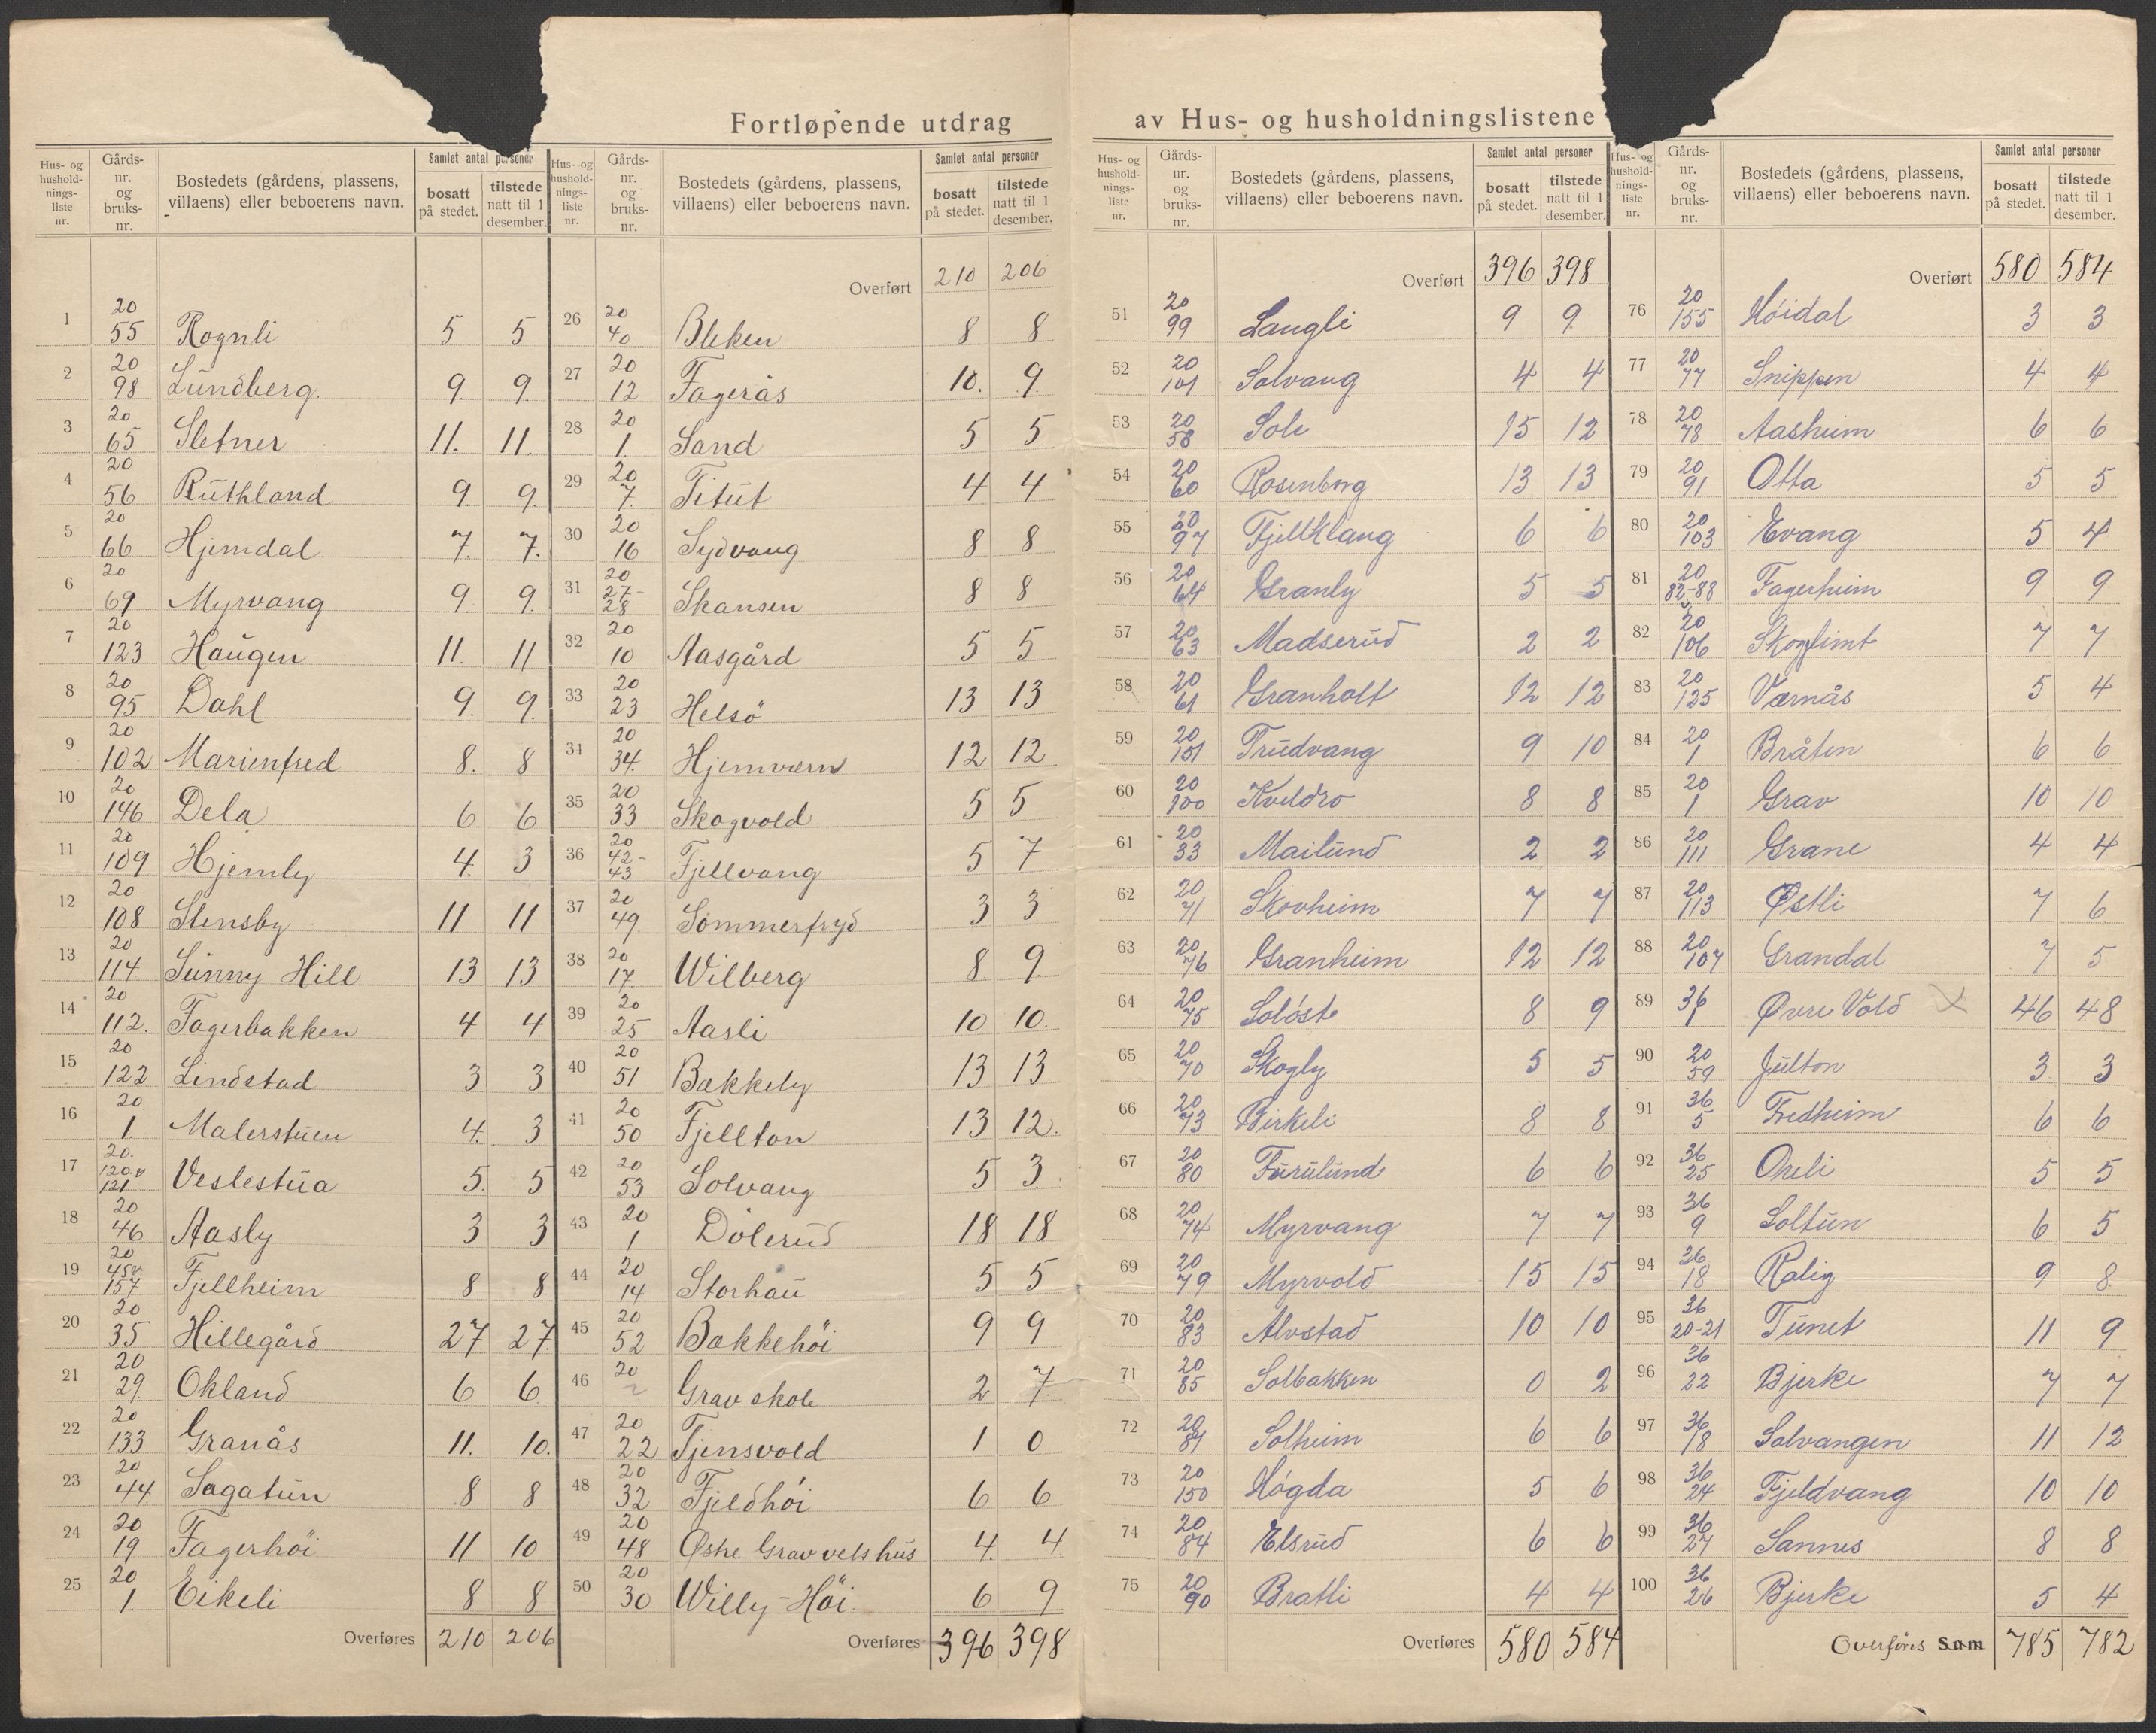 Fortløpende utdrag av Hus- og husholdningslistene
Hus- og hushold-nings-liste nr. Gårds-nr. og bruks-nr. Bostedets (gårdens, plassens, villaens) eller beboerens navn. Samlet antal personer bosatt på stedet. tilstede natt til 1 desember.
1 20 55 Rognli 5 5
2 20 98 Lundberg. 9. 9.
3 20 65 Sletner 11. 11.
4 20 56 Ruthland 9. 9.
5 20 66 Hjemdal 7. 7.
6 20 69 Myrvang 9. 9.
7 20 123 Haugen 11. 11
8 20 95 Dahl 9. 9.
9 20 102 Marienfred 8. 8
10 20 146 Dela 6 6
11 20 109 Hjemly 4. 3
12 20 108 Stensby 11 11
13 20 114 Sunny Hill 13 13
14 20 112. Fagerbakken 4 4
15 20 122 Lindstad 3 3
16 20 1. Malerstuen 4. 3
17 20. 120 v 121 Veslestua 5. 5
18 20 46 Aasly 3 3
19 20 45 v 157 Fjellheim 8 8
20 20 35 Hillegård 27 27.
21 20 29. Okland 6 6
22 20 133 Granås 11. 10.
23 20 44 Sagatun 8 8
24 20 19 Fagerhöi 11 10
25 20 1. Eikeli 8 8
Overføres 210 206
Hus- og hushold-nings-liste nr. Gårds-nr. og bruks-nr. Bostedets (gårdens, plassens, villaens) eller beboerens navn. Samlet antal personer bosatt på stedet. tilstede natt til 1 desember.
Overført 210 206
26 20 40 Bleken 8 8
27 20 12 Fagerås 10. 9.
28 20 1. Sand 5 5
29 20 7. Titut 4 4
30 20 16 Sydvang 8 8
31 20 27-28 Skansen 8 8
32 20 10 Aasgård 5 5
33 20 23 Helsö 13 13
34 20 34. Hjemværn 12 12
35 20 33 Skogvold 5 5
36 20 42-43 Fjellvang 5 7
37 20 49 Sommerfryd 3 3
38 20 17. Wilberg 8 9
39 20 25 Aasli 10 10.
40 20 51 Bakkely 13 13
41 20 50 Fjellton 13 12.
42 20 53 Solvang 5 3
43 20 1 Dölerud 18 18
44 20 14 Storhau 5 5
45 20 52 Bakkehöi 9 9
46 20 Grav skole 2 7
47 20 22 Tjensvold 1 0
48 20 32 Fjeldhöi 6 6
49 20 48 Østre Grav vets hus 4. 4
50 20 30 Willy-Höi. 6 9
Overføres 396 398
Hus- og hushold-nings-liste nr. Gårds-nr. og bruks-nr. Bostedets (gårdens, plassens, villaens) eller beboerens navn. Samlet antal personer bosatt på stedet. tilstede natt til 1 desember.
Overført 396 398
51 20 99 Langli 9 9
52 20 101 Solvang 4 4
53 20 58 Sole 15 12
54 20 60 Rosenborg 13 13
55 20 97 Fjellklang 6 6
56 20 64 Granly 5 5
57 20 63 Madserud 2 2
58 20 61 Granholt 12 12
59 20 151 Trudvang 9 10
60 20 100 Kveldro 8 8
61 20 33 Mailund 2 2
62 20 71 Skovheim 7 7
63 20 76 Granheim 12 12
64 20 75 Soløst 8 9
65 20 70 Skogly 5 5
66 20 73 Birkeli 8 8
67 20 80 Furulund 6 6
68 20 74 Myrvang 7 7
69 20 79 Myrvold 15 15
70 20 83 Alvstad 10 10
71 20 85 Solbakken 0 2
72 20 81 Solheim 6 6
73 20 150 Høgda 5 6
74 20 84 Elsrud 6 6
75 20 90 Bratli 4 4
Overføres 580 584
Hus- og hushold-nings-liste nr. Gårds-nr. og bruks-nr. Bostedets (gårdens, plassens, villaens) eller beboerens navn. Samlet antal personer bosatt på stedet. tilstede natt til 1 desember.
Overført 580 584
76 20 155 Høidal 3 3
77 20 77 Snippen 4 4
78 20 78 Aasheim 6 6
79 20 91 Otta 5 5
80 20 103 Evang 5 4
81 20 82-88 Fagerheim 9 9
82 20 106 Skoglimt 7 7
83 20 125 Værnås 5 4
84 20 1 Bråten 6 6
85 20 1 Grav 10 10
86 20 111 Grane 4 4
87 20 113 Østli 7 6
88 20 107 Grandal 7 5
89 36 1 Øvre Vold X 46 48
90 20 59 Julton 3 3
91 36 5 Fredheim 6 6
92 36 25 Oreli 5 5
93 36 9 Soltun 6 5
94 36 18 Rolig 9 8
95 36 20-21 Tunet 11 9
96 36 22 Bjerke 7 7
97 36 18 Solvangen 11 12
98 36 24 Fjeldvang 10 10
99 36 27 Sannes 8 8
100 36 26 Bjerke 5 4
Overføres Sum 785 782